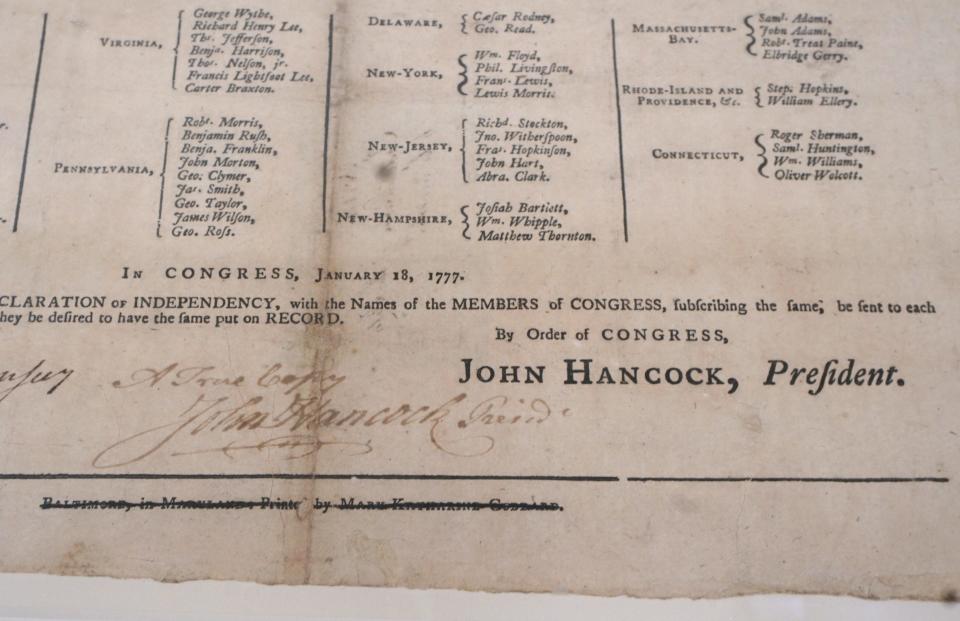 VIRGINIA,
George Wythe,
Richard Henry Lee,
Thˢ. Jefferſon,
Benjª. Harriſon,
Thoˢ. Nelſon, jr.
Francis Lightfoot Lee,
Carter Braxton.
PENNSYLVANIA,
Robᵗ. Morris,
Benjamin Ruſh,
Benja. Franklin,
John Morton,
Geo. Clymer,
Jaˢ. Smith,
Geo. Taylor,
James Wilſon,
Geo. Roſs.
DELAWARE,
Cæſar Rodney,
Geo. Read.
NEW-YORK,
Wᵐ. Floyd,
Phil. Livingſton,
Franˢ. Lewis,
Lewis Morris.
NEW-JERSEY,
Richᵈ. Stockton,
Jno. Witherſpoon,
Fraˢ. Hopkinſon,
John Hart,
Abra. Clark.
NEW-HAMPSHIRE,
Joſiah Bartlett,
Wᵐ. Whipple,
Matthew Thornton.
MASSACHUSETTS-
BAY.
Samˡ. Adams,
John Adams,
Robᵗ. Treat Paine,
Elbridge Gerry.
RHODE-ISLAND AND
PROVIDENCE, &c.
Step. Hopkins,
William Ellery.
CONNECTICUT,
Roger Sherman,
Samˡ. Huntington,
Wᵐ. Williams,
Oliver Wolcott.
IN CONGRESS, JANUARY 18, 1777.
CLARATION OF INDEPENDENCY, with the Names of the MEMBERS of CONGRESS, ſubſcribing the ſame, be ſent to each
hey be deſired to have the ſame put on RECORD.
By Order of CONGRESS,
JOHN HANCOCK, Preſident.
A True Copy
John Hancock Presidᵗ
BALTIMORE, in MARYLAND: Printed by MARY KATHARINE GODDARD.